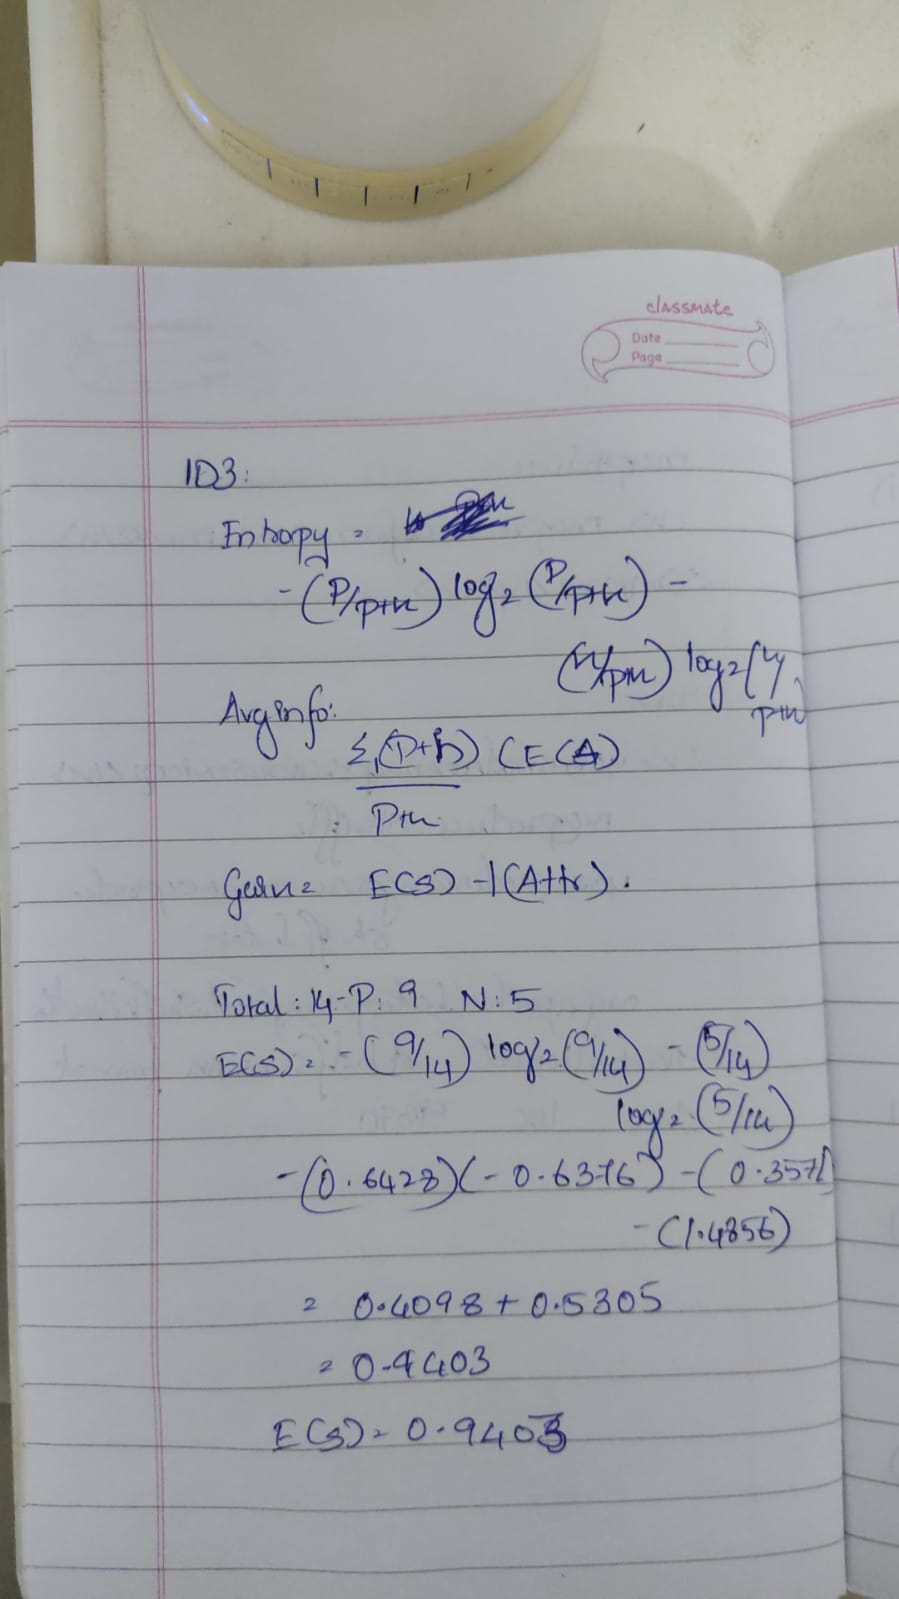 classmate
Date
Page
ID3:
Entropy =
-(P/P+n) log₂ (P/P+n) -
(n/P+n) log₂ (n/
P+n)
Avg info:
Σ (P+n) (E(A)
P+n
Gain = E(S) - I(Attr).
Total: 14 - P: 9 N: 5
E(S) = -(9/14) log₂ (9/14) - (5/14)
log₂ (5/14)
-(0.6428)(-0.6376) - (0.3571)
-(1.4856)
= 0.4098 + 0.5305
= 0.9403
E(S) = 0.9403